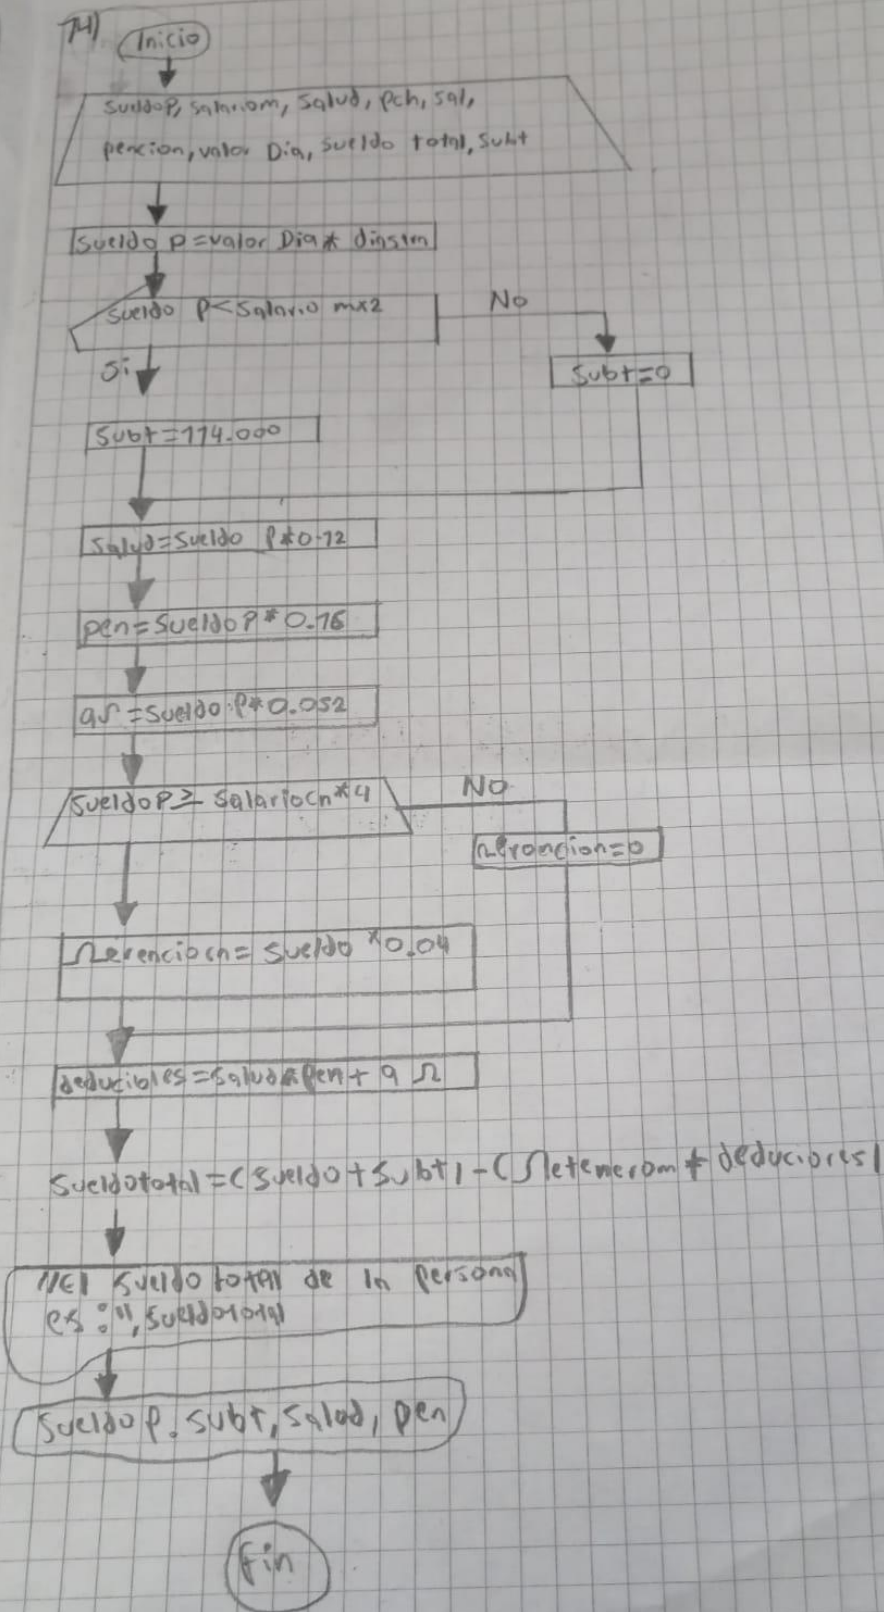 14)
Inicio
sueldoP, salariom, salud, pch, sal,
pencion, valor Dia, sueldo total, subt
sueldo p=valor Dia* diastm
sueldo p<salario mx2
No
Si
subt=0
subt=114.000
salud=sueldo p*0.12
pen=sueldop*0.16
ar=sueldo.p*0.052
sueldop≥ salariocn*4
No
=0
= sueldo *0.04
deducibles=salud*pen+a r
sueldototal=(sueldo+subt)-( + deduciores)
"El sueldo total de la persona
es:", sueldototal
sueldop. subt, salod, pen
Fin